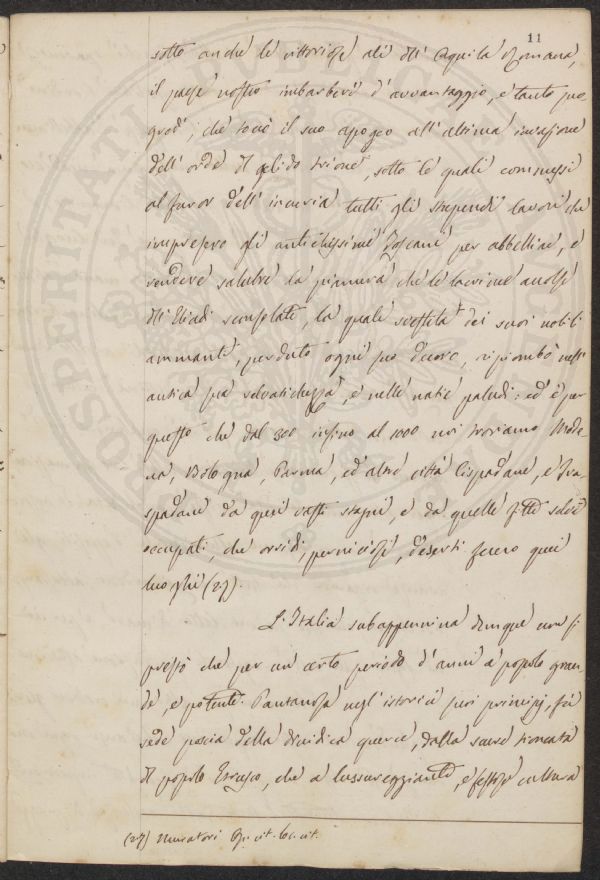 11
sotto anche le vittoriose ali dell' Aquila Romana,
il paese nostro imbarberì d'avvantaggio, e tanto pro
gredì, che toccò il suo apogeo all' ultima invasione
dell' orde del gelido trione, sotto le quali commessi
al furor dell' incuria tutti gli stupendi lavori che
impresero gli antichissimi Toscani per abbellire, e
rendere salubre la pianura che le lacrime accolse
dell' Eliadi sconsolate, la quale scossita dei suoi nobili
ammanti, perduto ogni suo decoro, ripiombò nell'
antica sua selvatichezza, e nelle natie paludi: ed è per
questo che dal 300 infino al 1000 noi troviamo Mode
na, Bologna, Parma, ed altre città Cispadane, e Tra-
spadane da quei vasti stagni, e da quelle fitte selve
occupati, che orridi, perniciosi, deserti fecero quei
luoghi (27).
L'Italia subappennina dunque non fu
presso che per un certo periodo d'anni a popolo gran-
de, e potente. Pantanosa negl' istorici suoi principj, fu
sede poscia della druidica querce, dalla scure troncata
del popolo Etrusco, che a lussureggiante, e festosa cultura
(27) Muratori Op. cit. loc. cit.